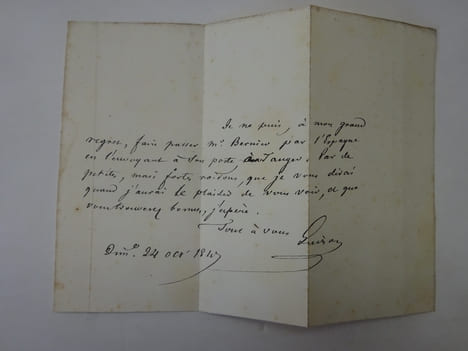 Je ne puis, à mon grand
regret, faire passer Mr Bernier par l'Espagne
en l'envoyant à son poste, à Tanger. Par de
petites, mais fortes raisons, que je vous dirai
quand j'aurai le plaisir de vous voir, et que
vous trouverez bonnes, j'espère.
Tout à vous
Dim. 24 oct 184